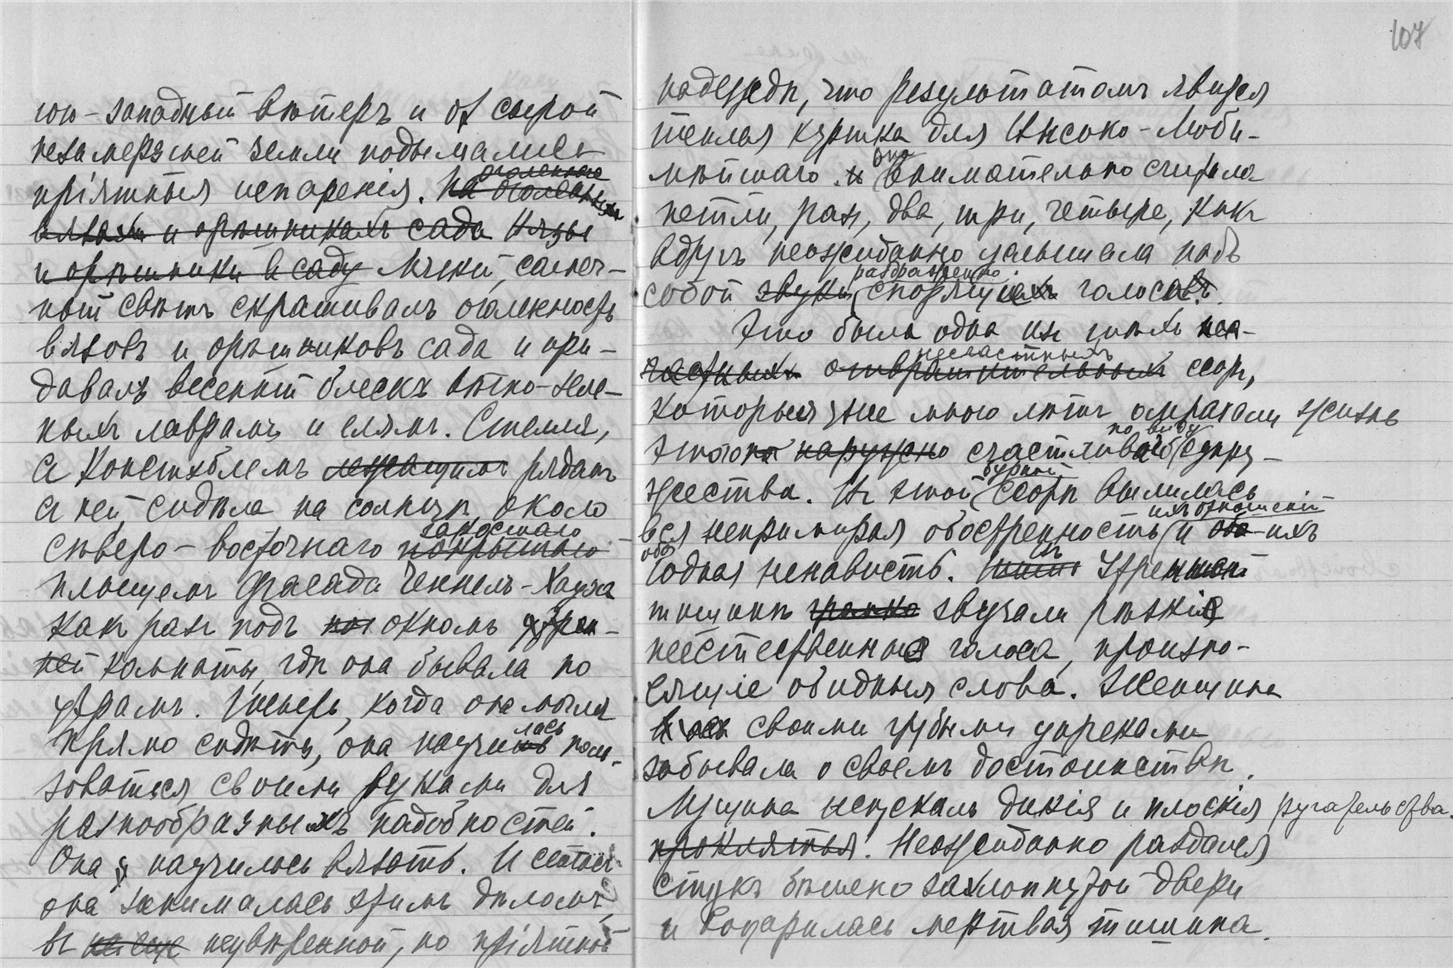 107
юго-западный вѣтеръ и от сырой
незамерзшей земли подымались
пріятныя испаренія. На оголенныхъ
оголенного
вязахъ и орѣшникахъ сада Вязы
и орѣшники въ саду Мягкій, солнеч-
ный свѣтъ скрашивалъ оголенность
вязовъ и орѣшниковъ сада и при-
давалъ весенній блескъ вѣчно-зеле-
нымъ лаврамъ и елямъ. Стелла,
съ Констэблемъ лежащимъ рядомъ
съ ней сидѣла на солнцѣ, около
сѣверо-восточнаго покрытаго
заросшаго
плющемъ фасада Ченнель-Хауза
какъ разъ подъ окномъ утрен-
ней комнаты, гдѣ она бывала по
утрамъ. Теперь, когда она могла
прямо сидѣть, она научилась поль-
зоваться своими руками для
разнообразныхъ надобностей.
Она научилась вязать. И сейчасъ
она занималась этимъ дѣломъ,
въ не еще неувѣренной, но пріятной
надеждѣ, что результатомъ явится
теплая куртка для Высоко-Люби-
мѣйшаго. и Она внимательно считала
петли, разъ, два, три, четыре, какъ
вдругъ неожиданно услышала надъ
собой звуки раздраженно спорящихъ голосовъ.
Это была одна изъ тѣхъ нес-
частныхъ отвратительныхъ несчастныхъ ссоръ,
которыя уже много лѣтъ омрачали жизнь
этого наружно счастливаго по виду супру-
жества. Въ этой бурной ссорѣ вылилась
вся непримиримая обостренность их отношеній и ихъ
обо-
юдная ненависть. Въ Утренней
тишинѣ громко звучали рѣзкіе
неестественные голоса, произно-
сящіе обидныя слова. Женщина
своими грубыми упреками
забывала о своемъ достоинствѣ.
Мущина испускалъ дикія и плоскія ругательства.
проклятья. Неожиданно раздался
стукъ бѣшено захлопнутой двери
и воцарилась мертвая тишина.